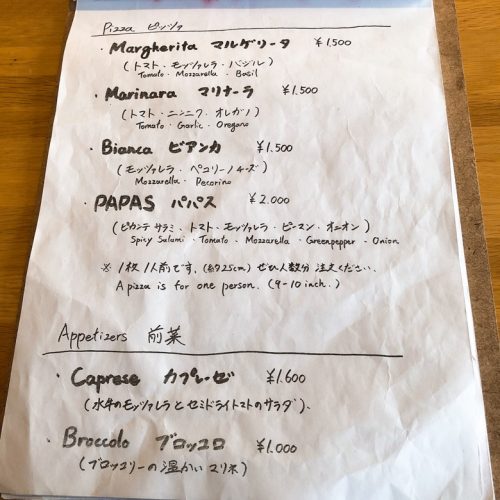 Pizza ピッツァ
・Margherita マルゲリータ ¥1,500
(トマト・モッツァレラ・バジル)
Tomato・Mozzarella・Basil
・Marinara マリナーラ ¥1,500
(トマト・ニンニク・オレガノ)
Tomato・Garlic・Oregano
・Bianca ビアンカ ¥1,500
(モッツァレラ・ペコリーノチーズ)
Mozzarella・Pecorino
・PAPAS パパス ¥2,000
(ピカンテサラミ・トマト・モッツァレラ・ピーマン・オニオン)
Spicy Salami・Tomato・Mozzarella・Greenpepper・Onion
※1枚1人前です。(約25cm) ぜひ人数分注文ください。
A pizza is for one person. (9-10 inch.)
Appetizers 前菜
・Caprese カプレーゼ ¥1,600
(水牛のモッツァレラとセミドライトマトのサラダ)、
・Broccolo ブロッコロ ¥1,000
(ブロッコリーの温かいマリネ)